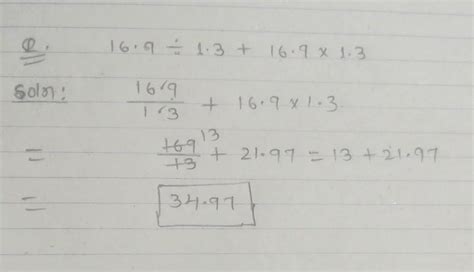 Q. 16.9 ÷ 1.3 + 16.9 × 1.3
Soln: 16.9/1.3 + 16.9 × 1.3
= 169/13 13 + 21.97 = 13 + 21.97
= 34.97